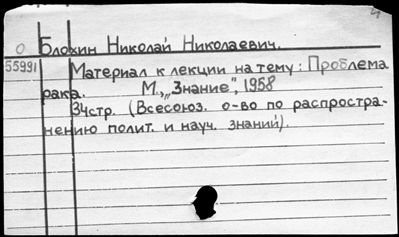 О Блохин Николай Николаевич.
55991 Материал к лекции на тему: Проблема
рака. М., „Знание", 1958
34стр. (Всесоюз. о-во по распростра-
нению полит. и науч. знаний).